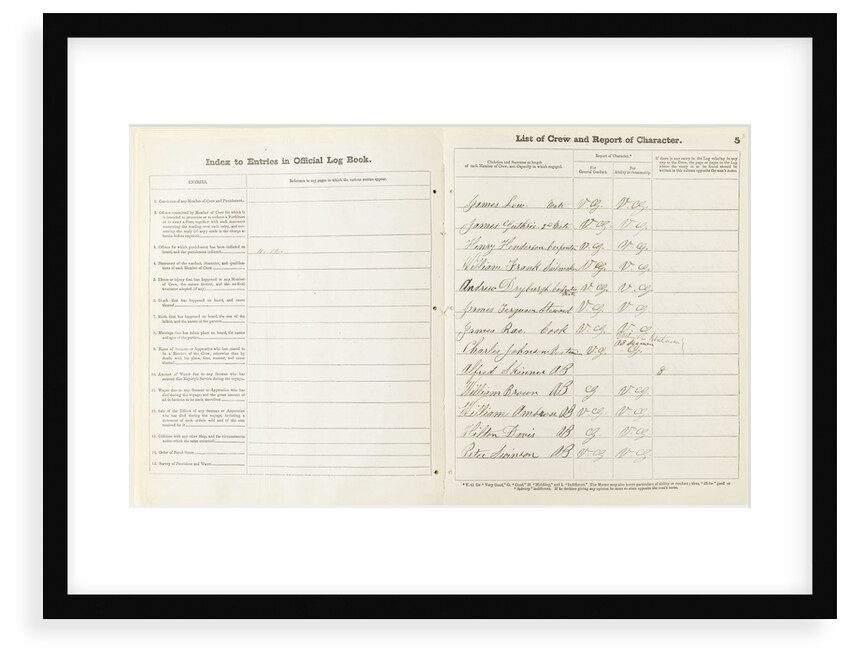 Index to Entries in Official Log Book.
ENTRIES.
Reference to any pages in which the various entries appear.
1. Conviction of any Member of Crew and Punishment
2. Offence committed by Member of Crew for which it
is intended to prosecute or to enforce a Forfeiture
or to exact a Fine, together with such statement
concerning the reading over such entry, and con-
cerning the reply (if any) made to the charge as
herein-before required
3. Offence for which punishment has been inflicted on
board, and the punishment inflicted
4. Statement of the conduct, character, and qualifica-
tions of each Member of Crew
5. Illness or injury that has happened to any Member
of Crew, the nature thereof, and the medical
treatment adopted (if any)
6. Death that has happened on board, and cause
thereof
7. Birth that has happened on board, the sex of the
infant, and the names of the parents
8. Marriage that has taken place on board, the names
and ages of the parties
9. Name of Seaman or Apprentice who has ceased to
be a Member of the Crew, otherwise than by
death, with the place, time, manner, and cause
thereof
10. Amount of Wages due to any Seaman who has
entered Her Majesty's Service during the voyage
11. Wages due to any Seaman or Apprentice who has
died during the voyage, and the gross amount of
all deductions to be made therefrom
12. Sale of the Effects of any Seaman or Apprentice
who has died during the voyage, including a
statement of each article sold and of the sum
received for it
13. Collision with any other Ship, and the circumstances
under which the same occurred
14. Order of Naval Court
15. Survey of Provisions and Water
List of Crew and Report of Character.
5
Christian and Surname at length
of each Member of Crew, and Capacity in which engaged.
Report of Character.*
For
General Conduct.
For
Ability in Seamanship.
If there is any entry in the Log relating to any
James Law. Mate V.G. V.G.
James Guthrie 2d Mate V.G. V.G.
Henry Henderson Carpenter V.G. V.G.
William Frank V.G. V.G.
Andrew Dryburgh V.G. V.G.
James Ferguson Steward V.G. V.G.
James Rae Cook V.G. V.G.
Charles Johnson V.G. G.
Alfred Skinner AB 8
William Brown AB G V.G.
William AB V.G. V.G.
Hilton Davis AB G V.G.
Peter Swinson AB V.G. V.G.
* V. G. for "Very Good," G. "Good," M. "Middling," and I. "Indifferent."